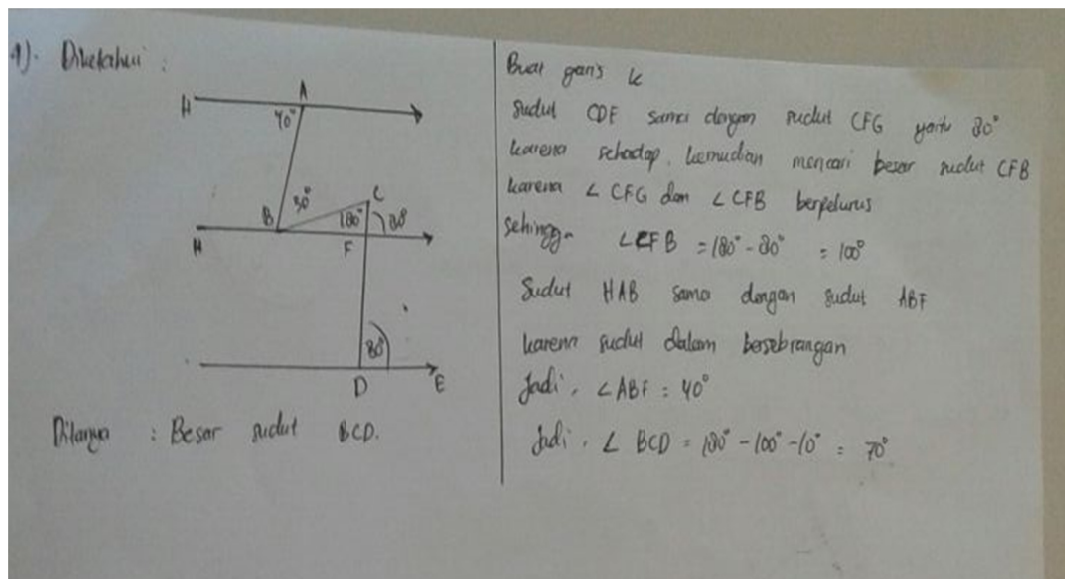 1). Diketahui :
H
A
40°
B
30°
C
100°
80°
H
F
80°
D
E
Ditanya : Besar sudut BCD.
Buat garis k
Sudut CDE sama dengan sudut CFG yaitu 80°
karena sehadap. kemudian mencari besar sudut CFB
karena ∠ CFG dan ∠ CFB berpelurus
Sehingga ∠CFB = 180° - 80° = 100°
Sudut HAB sama dengan sudut ABF
karena sudut dalam bersebrangan
Jadi, ∠ABF = 40°
Jadi, ∠ BCD = 180° - 100° - 10° = 70°